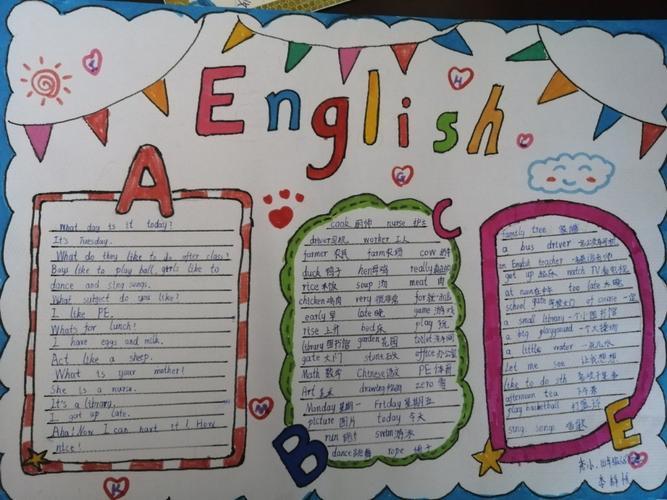 English
A
What day is it today?
It's Tuesday.
What do they like to do after class?
Boys like to play ball, girls like to
dance and sing songs.
What subject do you like?
I like PE.
Whats for lunch!
I have eggs and milk.
Act like a sheep.
What is your mother!
She is a nurse.
It's a library.
I got up late.
Aha! Now I can hart it! How
nice!
C
cook 厨师 nurse 护士
driver司机 worker 工人
farmer 农民 farm农场 cow 奶牛
duck 鸭子 hen母鸡 really
rice米饭 soup 汤 meat 肉
chicken鸡肉 very 很非常 for
early 早 late 晚 game 游戏
rise 上升 bud play 玩
library 图书馆 garden 花园 toilet
gate 大门 office 办公室
Math 数学 Chinese 语文 PE 体育
Art 美术 drawing zero 零
Monday 星期一 Friday 星期五
picture 图片 today 今天
run 跑步 swim游泳
dance跳舞 rope 绳子
B
family tree
a bus driver
an English teacher
get up 起床 watch TV 看电视
at noon在中午 too late 太晚
school gate of course 一定
a small library 一个小图书馆
a big playground 一个大操场
a little water 一点儿水
Let me see 让我想想
like to do sth
afternoon tea 下午茶
play basketball 打篮球
sing songs 唱歌
E